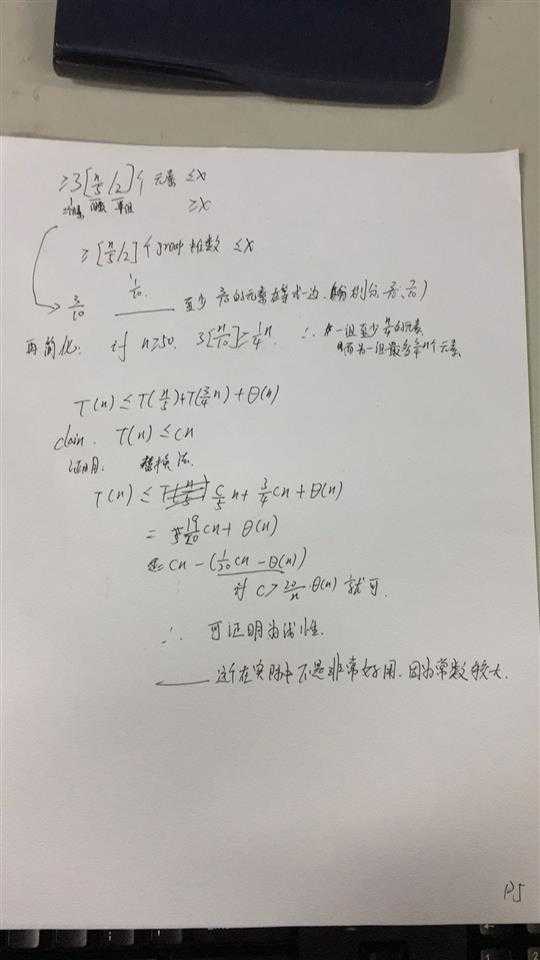 ≥3[n/5/2]个 元素 ≤x
≥x
≥[n/5/2]个group 中位数 ≤x
→ 3/10 至少 3/10的元素在某一边
再简化: 对 n≥50. 3[n/10]≥1/4n ∴ 一组至少 的元素
而另一组最多 个元素
T(n)≤T(n/5)+T(3/4n)+Θ(n)
claim. T(n)≤cn
证明: 替换法.
T(n)≤ c/5n+3/4cn+Θ(n)
=19/20cn+Θ(n)
=cn-(1/20cn-Θ(n))
对 c>20/n·Θ(n) 就可.
∴ 可证明为线性.
这个在实际中不是非常好用. 因为常数较大.
P5